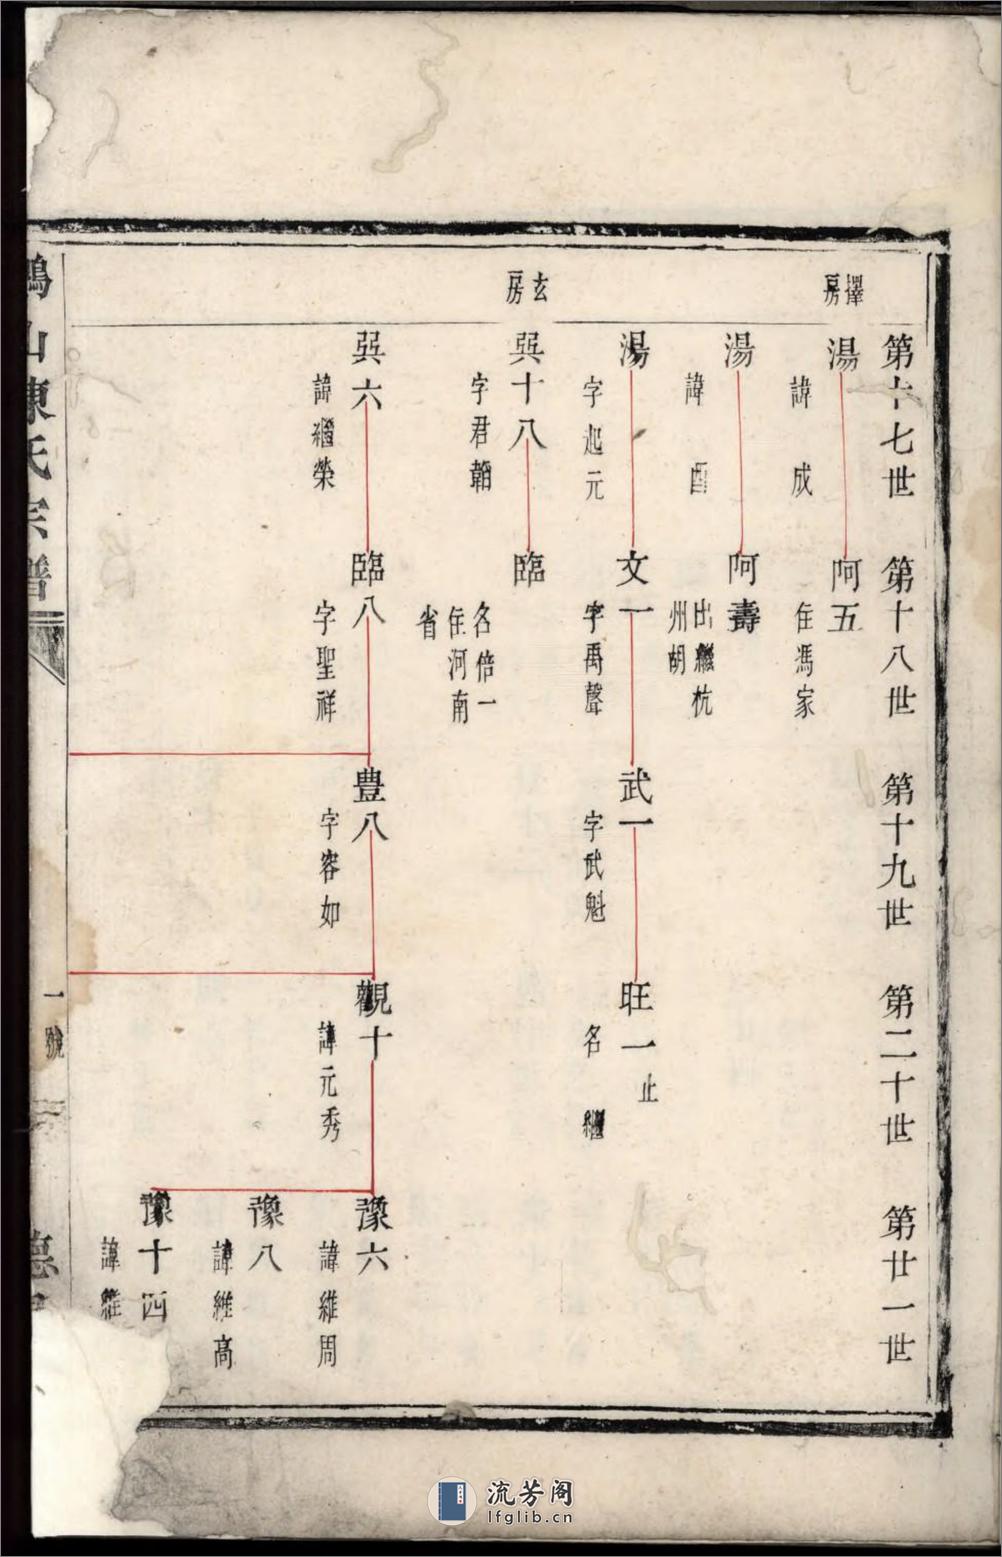 第十七世
第十八世
第十九世
第二十世
第廿一世
擇房
湯
諱成
阿五
住馮家
湯
諱酉
阿壽
出繼杭
州胡
湯
字起元
文一
字禹聲
武一
字武魁
旺一
止
名繼
玄房
吳十八
字君韜
臨
名倍一
住河南
省
吳六
諱繼榮
臨八
字聖祥
豊八
字容如
觀十
諱元秀
豫六
諱維周
豫八
諱維高
豫十四
諱維
山陳氏宗譜
一號
德
流芳阁
lfglib.cn